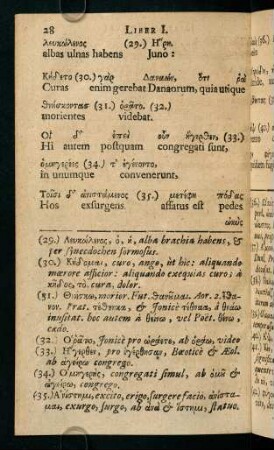 28 LIBER I.
λευκώλενος (29.) Ἥρη.
albas ulnas habens Juno :
Κήδετο (30.) γὰρ Δαναῶν, ὅτι ῥα
Curas enim gerebat Danaorum, quia utique
θνῄσκοντας (31.) ὁρᾶτο. (32.)
morientes videbat.
Οἱ δ' ἐπεὶ οὖν ἤγερθεν, (33.)
Hi autem postquam congregati sunt,
ὁμηγερέες (34.) τ' ἐγένοντο,
in unumque convenerunt,
Τοῖσι δ' ἀνιστάμενος (35.) μετέφη πόδας
Hos exsurgens affatus est pedes
ὠκὺς
(29.) Λευκώλενος, ὁ, ἡ, alba brachia habens, &
per synecdochen formosus.
(30.) Κήδομαι, curo, ango, ut hic: aliquando
mœrore afficior: aliquando exequias curo; à
κῆδος, το. cura, dolor.
(31.) Θνήσκω, morior. Fut. θανοῦμαι. Aor. 2. ἔθα-
νον. Præt. τέθνηκα, & Ionicè τέθναα, à θνάω
inusitat. hoc autem à θείνω, vel Poët. θένω,
cædo.
(32.) Ὁρᾶτο, Ionicè pro ὡρᾶτο, ab ὁράω, video
(33.) Ἤγερθεν, pro ἠγέρθησαν, Bœoticè & Æol.
ab ἀγείρω congrego.
(34.) Ὁμηγερὴς, congregati simul, ab ὁμῶ &
ἀγείρω, congrego.
(35.) Ἀνίστημι, excito, erigo, surgere facio, ἀνίστα-
μαι, exurgo, surgo, ab ἀνὰ & ἵστημι, statuo.